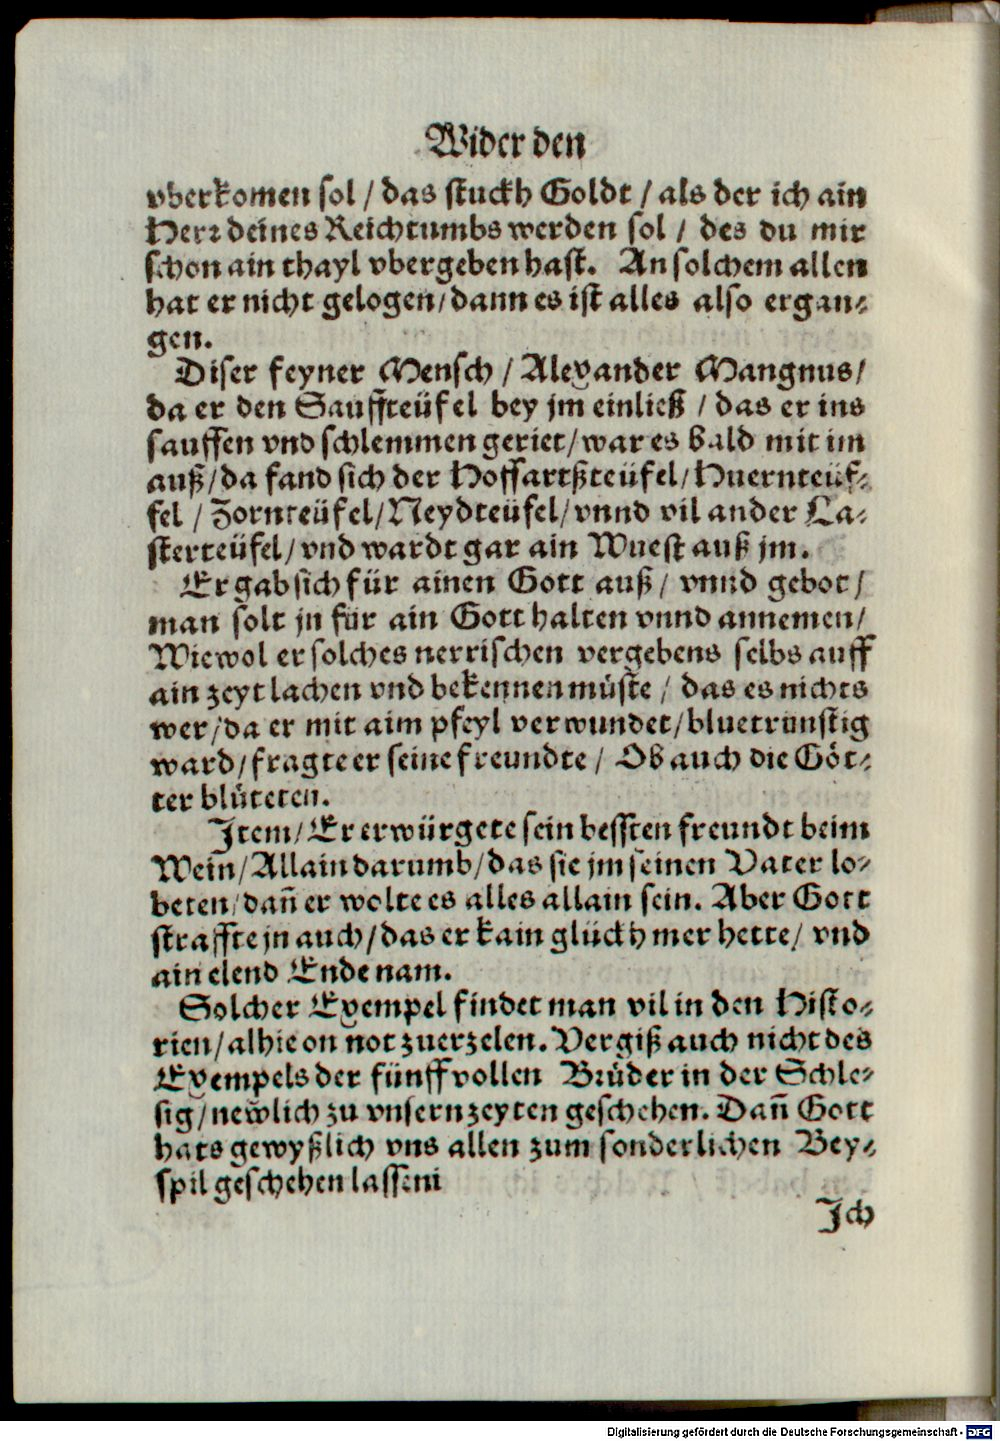 Wider den
vberkomen sol / das stuckh Goldt / als der ich ain
Herr deines Reichtumbs werden sol / des du mir
schon ain thayl vbergeben hast. An solchem allen
hat er nicht gelogen / dann es ist alles also ergan-
gen.
Diser feyner Mensch / Alexander Mangnus /
da er den Sauffteüfel bey jm einließ / das er ins
sauffen vnd schlemmen geriet / war es bald mit im
auß / da fand sich der Hoffartßteüfel / Huernteüf-
fel / Zornteüfel / Neydteüfel / vnnd vil ander La-
sterteüfel / vnd wardt gar ain Wuest auß jm.
Er gab sich für ainen Gott auß / vnnd gebot /
man solt jn für ain Gott halten vnnd annemen /
Wiewol er solches nerrischen vergebens selbs auff
ain zeyt lachen vnd bekennen müste / das es nichts
wer / da er mit aim pfeyl verwundet / bluetrünstig
ward / fragte er seine freundte / Ob auch die Göt-
ter blüteten.
Item / Er erwürgete sein bessten freundt beim
Wein / Allain darumb / das sie jm seinen Vater lo-
beten / dañ er wolte es alles allain sein. Aber Gott
straffte jn auch / das er kain glückh mer hette / vnd
ain elend Ende nam.
Solcher Exempel findet man vil in den Histo-
rien / alhie on not zuerzelen. Vergiß auch nicht des
Exempels der fünff vollen Brüder in der Schle-
sig / newlich zu vnsern zeyten geschehen. Dañ Gott
hats gewyßlich vns allen zum sonderlichen Bey-
spil geschehen lasseni
Ich
Digitalisierung gefördert durch die Deutsche Forschungsgemeinschaft - DFG